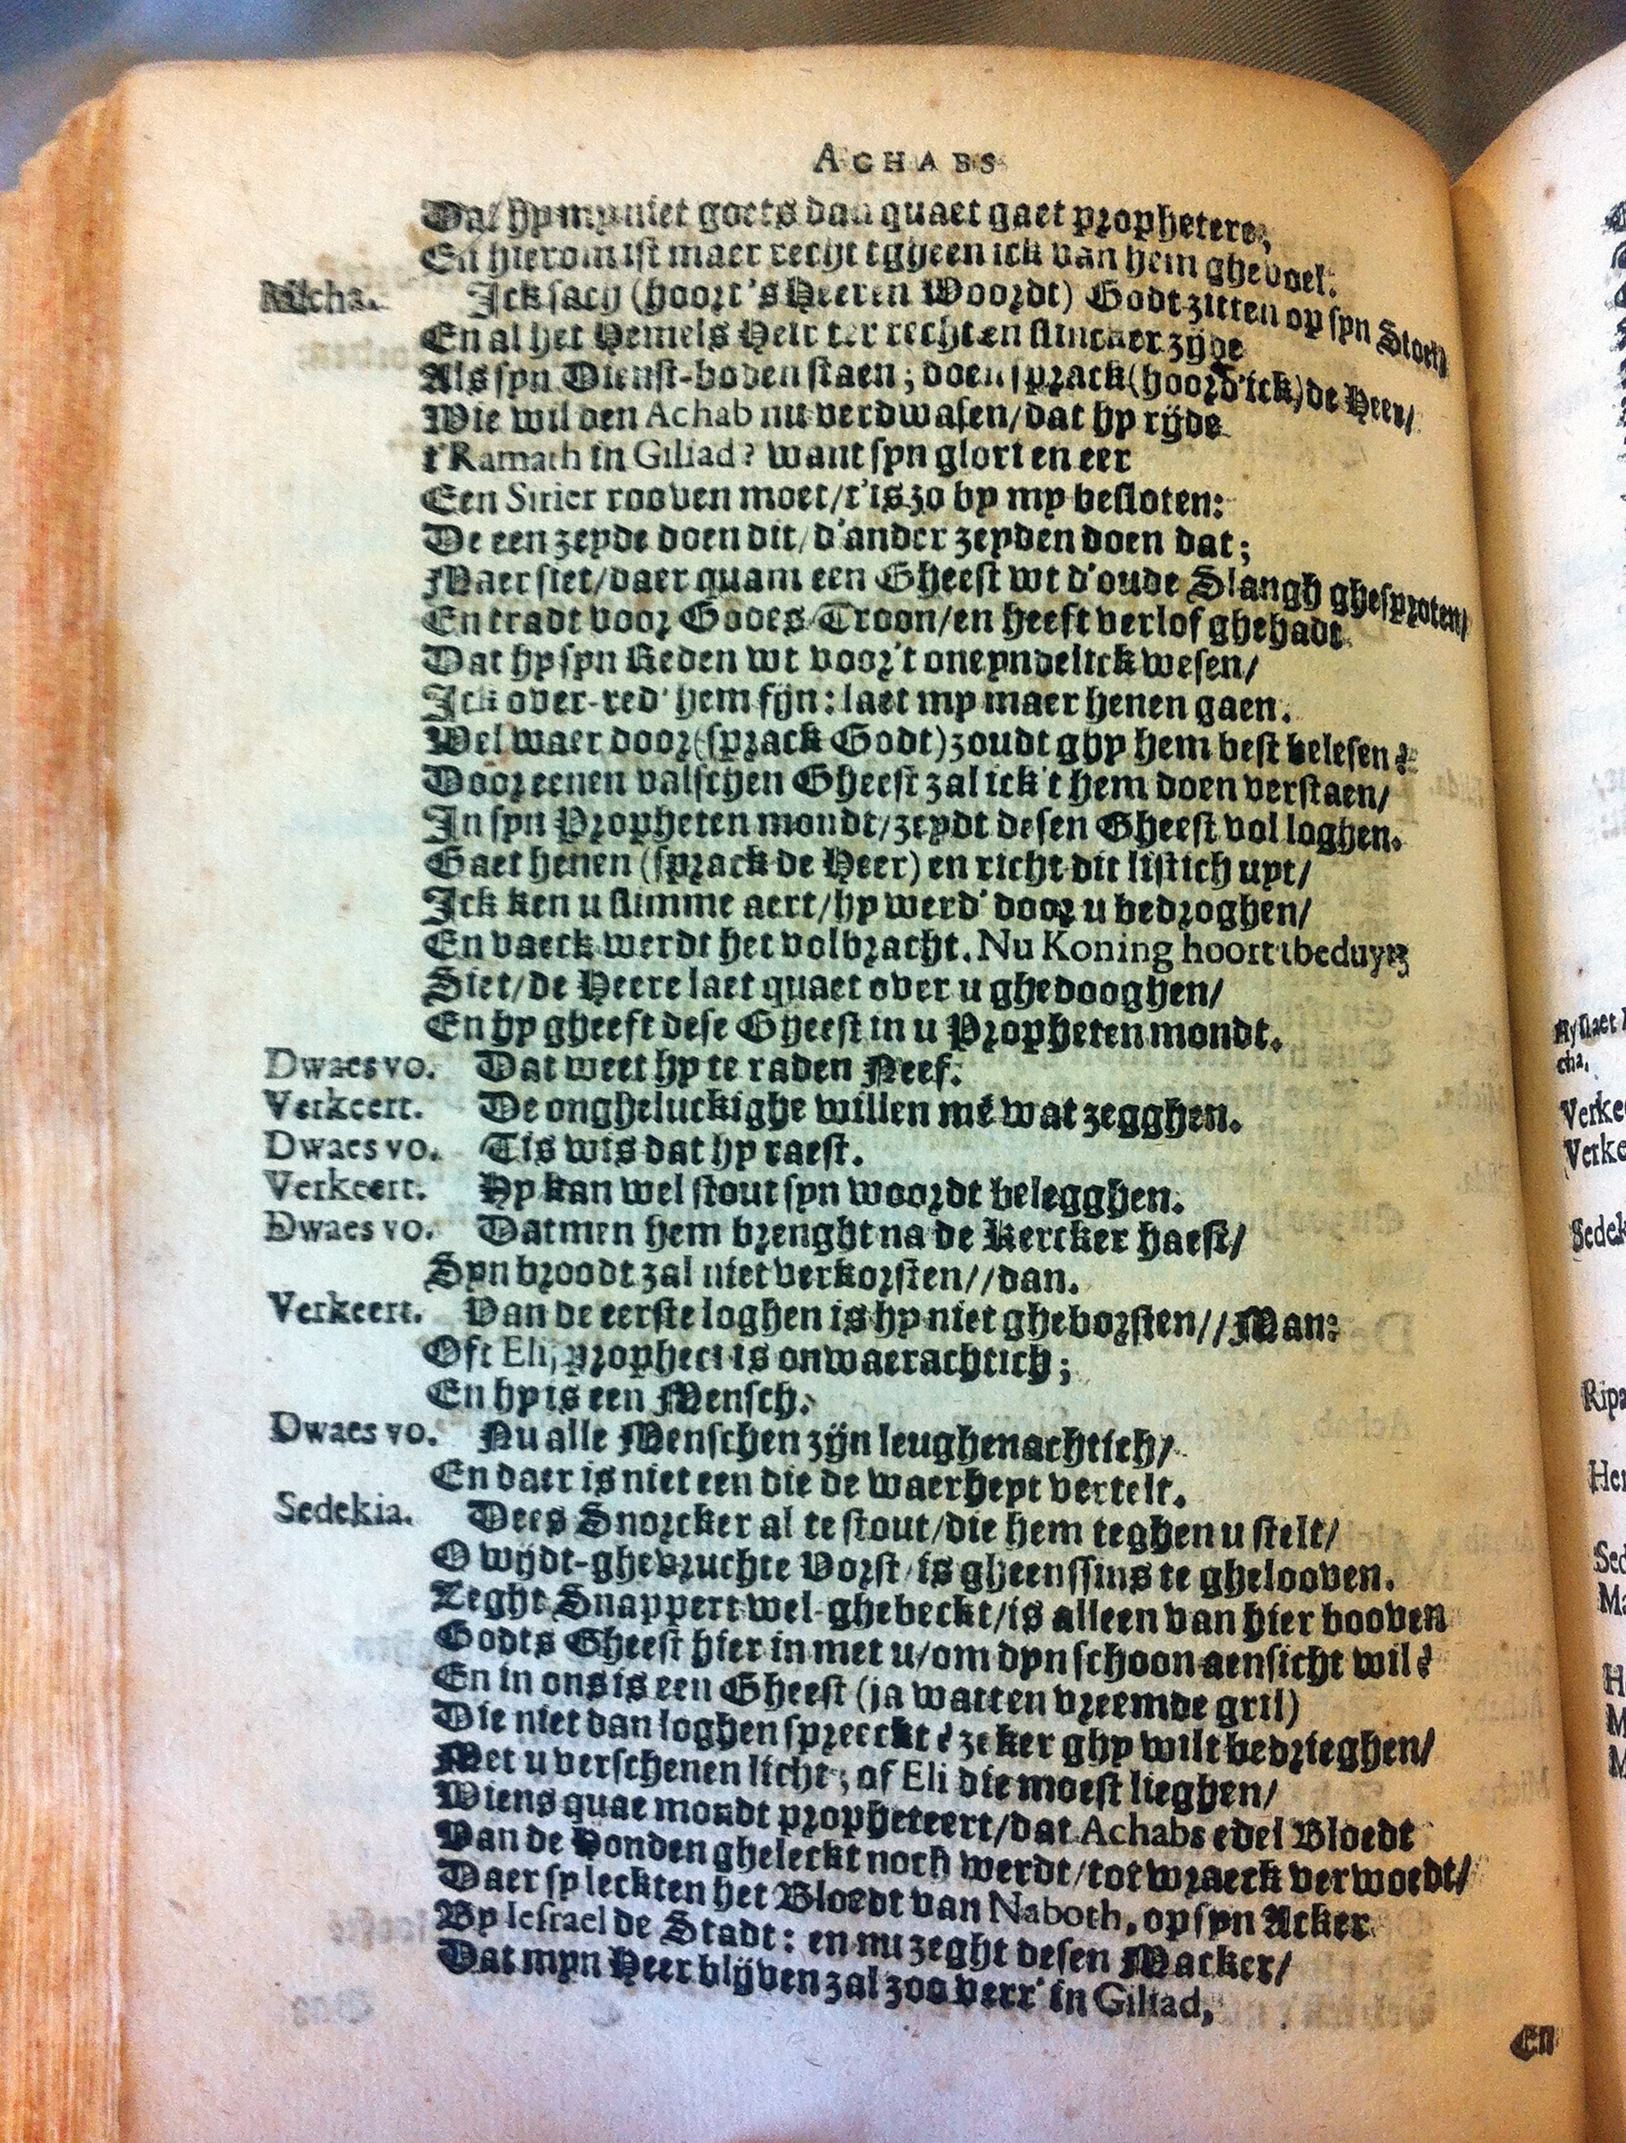 ACHABS
Dat hy my niet goets dan quaet gaet propheteren,
En hierom ist maer recht tgheen ick van hem ghevoel.
Micha. Ick sach (hoort 's Heeren Woordt) Godt zitten op syn Stoel,
En al het Hemels Heir ter recht en slincker zijde
Als syn Dienst-boden staen; doen sprack (hoord' ick) de Heer/
Wie wil den Achab nu verdwasen/dat hy rijde
t'Ramath in Giliad? want syn glori en eer
Een Sirier rooven moet/t'is zo by my besloten:
De een zeyde doen dit/d'ander zeyden doen dat;
Maer siet/daer quam een Gheest wt d'oude Slangh ghesproten/
En tradt voor Godes Troon/en heeft verlof ghehadt
Dat hy syn Reden wt voor't oneyndelick wesen/
Ick over-red' hem fijn: laet my maer henen gaen.
Wel waer door (sprack Godt) zoudt ghy hem best belesen?
Door eenen valschen Gheest zal ick't hem doen verstaen/
In syn Propheten mondt/zeydt desen Gheest vol loghen.
Gaet henen (sprack de Heer) en richt dit listich uyt/
Ick ken u slimme aert/hy werd' door u bedroghen/
En vaeck werdt het volbracht. Nu Koning hoort tbeduyt;
Siet/de Heere laet quaet over u ghedooghen/
En hy gheeft dese Gheest in u Propheten mondt.
Dwaes vo. Dat weet hy te raden Neef.
Verkeert. De ongheluckighe willen mé wat zegghen.
Dwaes vo. Tis wis dat hy raest.
Verkeert. Hy kan wel stout syn woordt belegghen.
Dwaes vo. Datmen hem brenght na de Kercker haest/
Syn broodt zal niet verkorsten//dan.
Verkeert. Van de eerste loghen is hy niet gheborsten//Man:
Oft Eli, prophect is onwaerachtich;
En hy is een Mensch.
Dwaes vo. Nu alle Menschen zijn leughenachtich/
En daer is niet een die de waerheyt vertelt.
Sedekia. Dees Snorcker al te stout/die hem teghen u stelt/
O wijdt-ghevruchte Vorst/is gheenssins te ghelooven.
Zeght Snappert wel-ghebeckt/is alleen van hier booven
Godts Gheest hier in met u/om dyn schoon aensicht wil?
En in ons is een Gheest (ja wat een vreemde gril)
Die niet dan loghen spreeckt? zeker ghy wilt bedrieghen/
Met u verschenen licht; of Eli die moest lieghen/
Wiens quae mondt propheteert/dat Achabs edel Bloedt
Van de Honden gheleckt noch werdt/tot wraeck verwoedt/
Daer sy leckten het Bloedt van Naboth, op syn Acker
By Iesrael de Stadt: en nu zeght desen Macker/
Dat myn Heer blijven zal zoo verr' in Giliad,
En
Hy slaet
cha.
Verkee
Verke
Sedek
Ripa